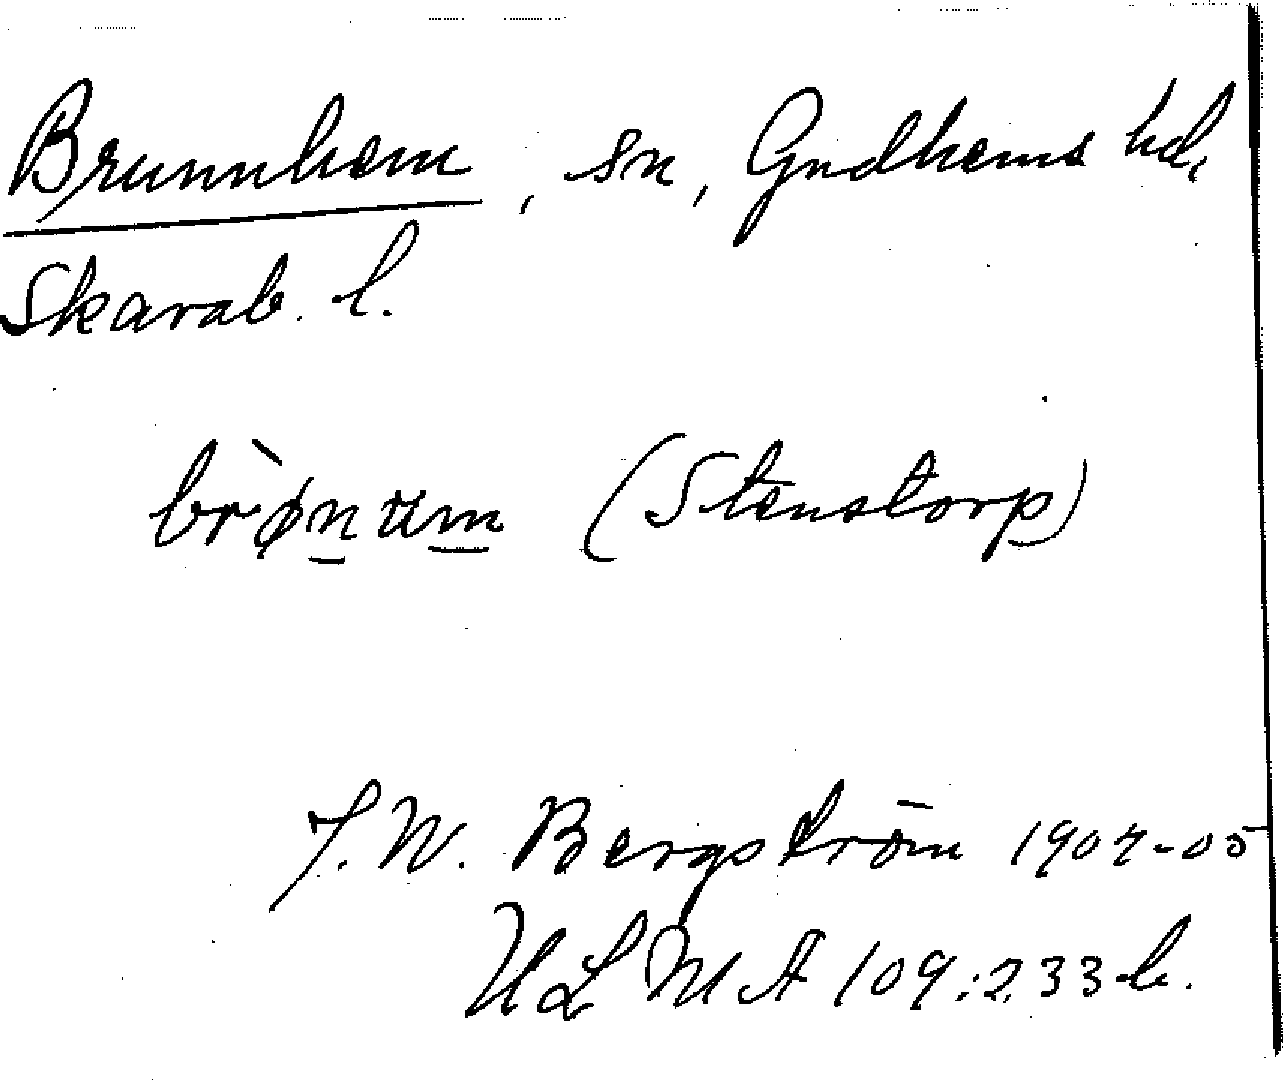 Brunnhem, sn, Gudhems hd,
Skarab. l.
brø̀num (Stenstorp)
J. W. Bergström 1904-05
ULMA 109:233 b.